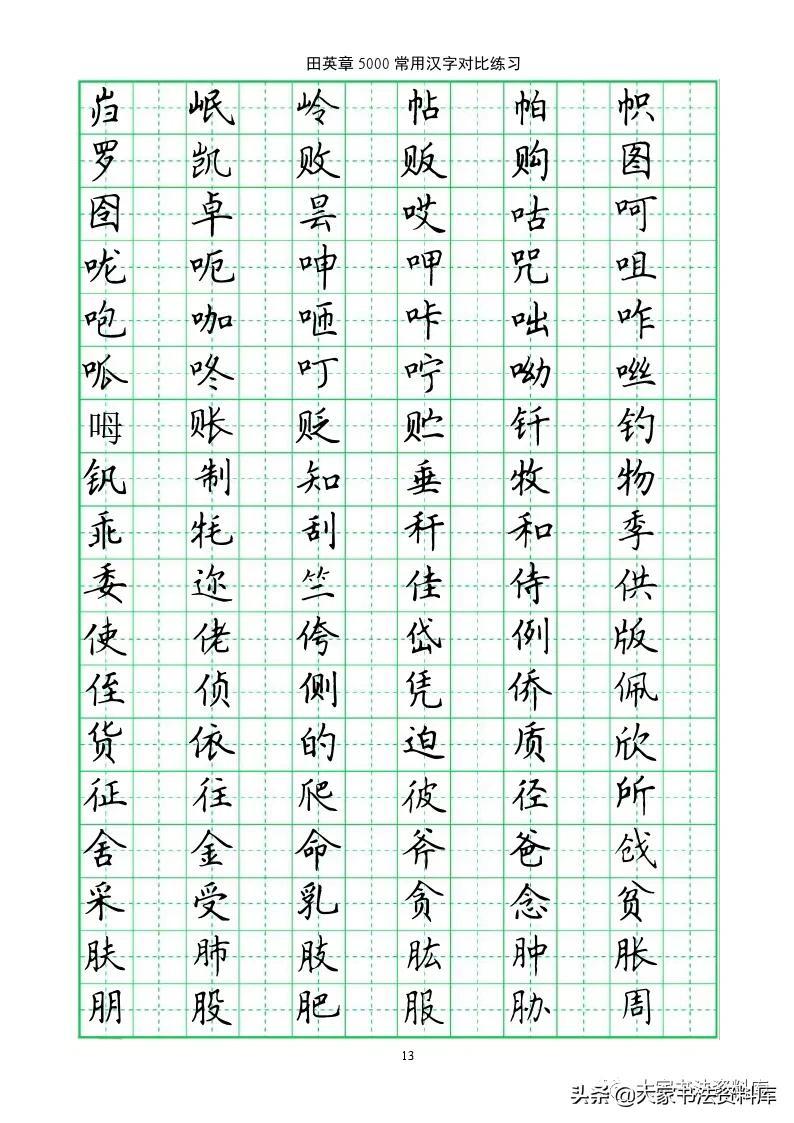 田英章 5000 常用汉字对比练习
岿 岷 岭 帖 帕 帜
罗 凯 败 贩 购 图
囹 卓 昙 哎 咕 呵
咙 呃 呻 呷 咒 咀
咆 咖 咂 咔 咄 咋
呱 咚 叮 咛 呦 咝
呣 账 贬 贮 钎 钓
钒 制 知 垂 牧 物
乖 牦 刮 秆 和 季
委 迩 竺 佳 侍 供
使 佬 侉 岱 例 版
侄 侦 侧 凭 侨 佩
货 依 的 迫 质 欣
征 往 爬 彼 径 所
舍 金 命 斧 爸 戗
采 受 乳 贪 念 贫
肤 肺 肢 肱 肿 胀
朋 股 肥 服 胁 周
13
大家书法资料库
头条@大家书法资料库